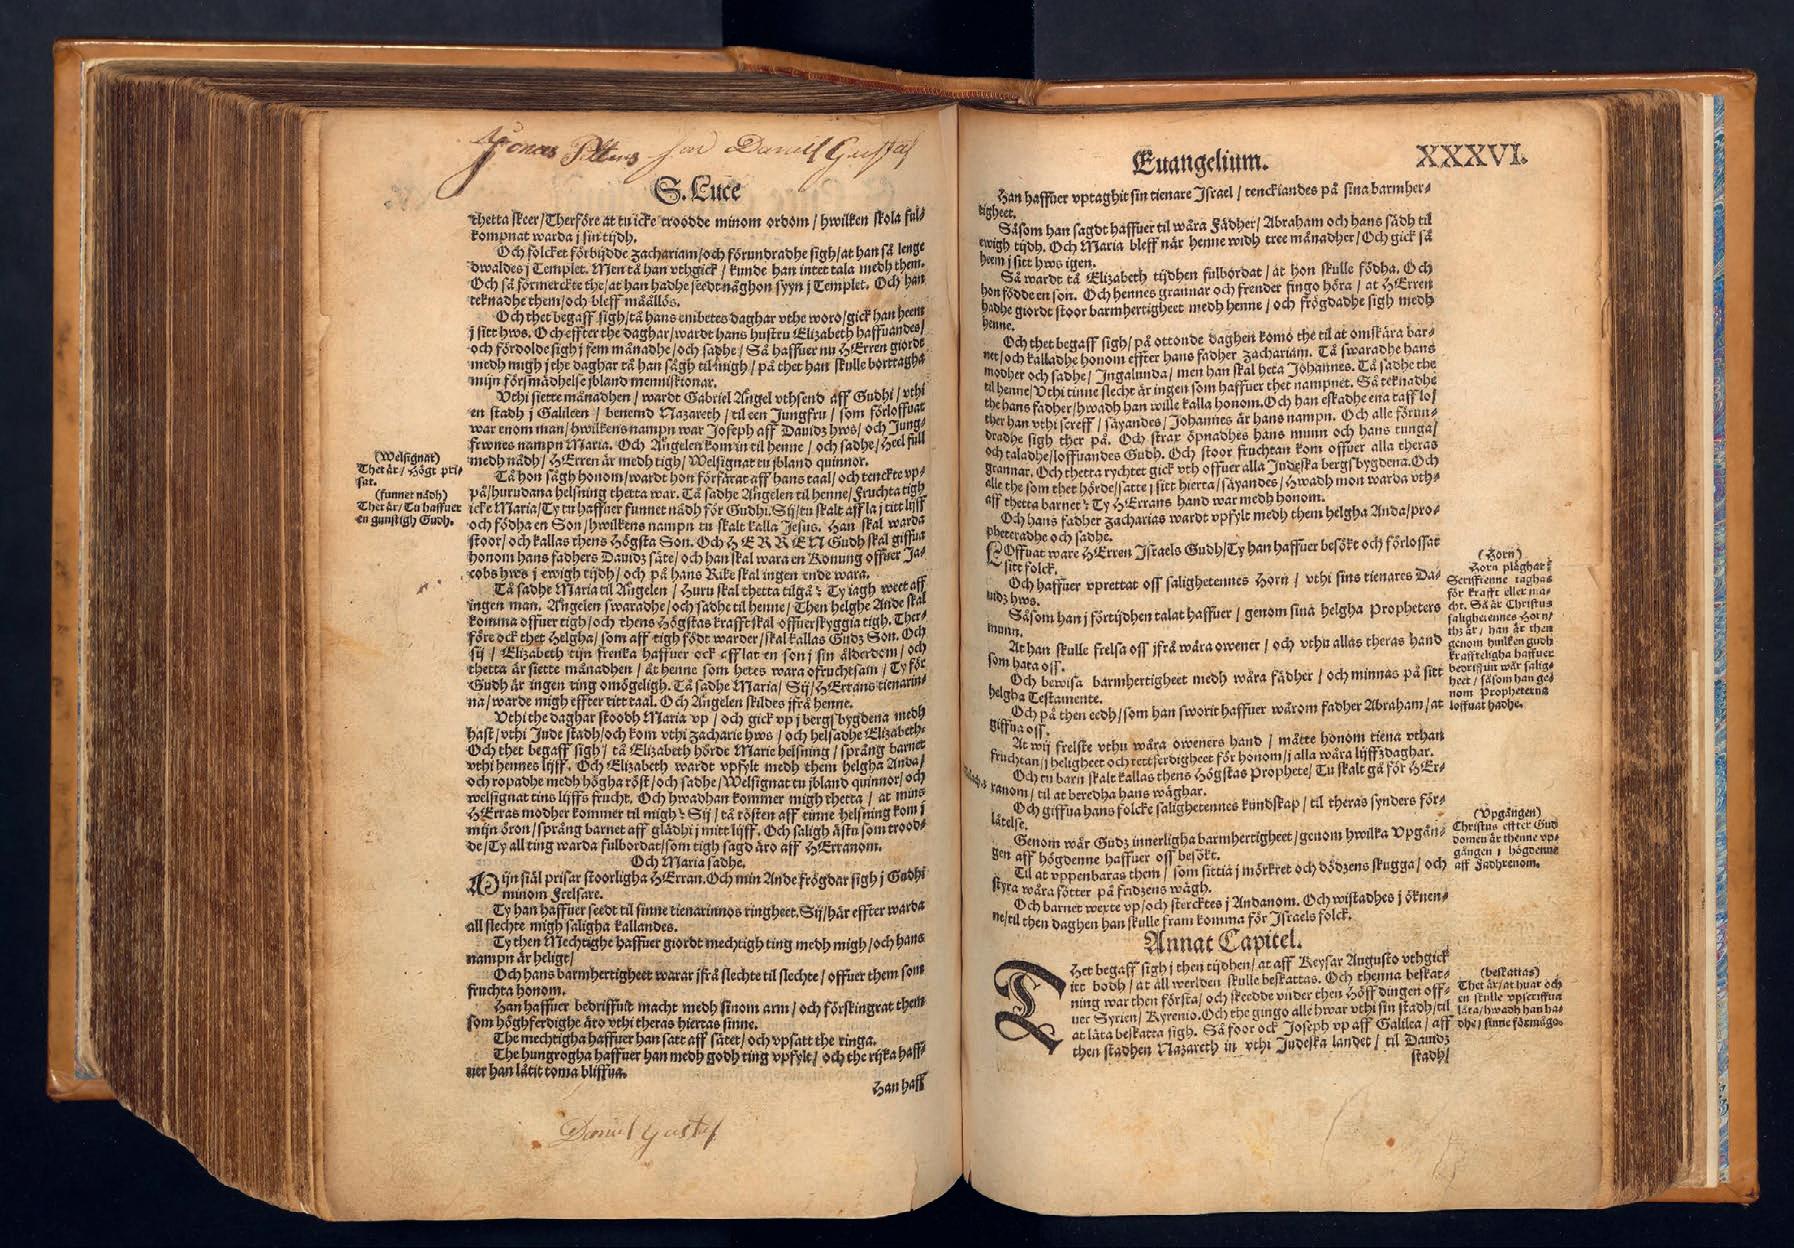 Daniel Gustaf
S. Luce
thetta skeer/Therföre at tu icke troodde minom ordom / hwilken skola ful-
kompnat warda j sin tijdh.
Och folcket förbijdde Zachariam/och förundradhe sigh/at han så lenge
dwaldes j Templet. Men tå han vthgick / kunde han intet tala medh them.
Och så förmerckte the/at han hadhe seedt någhon syyn j Templet. Och han
teknadhe them/och bleff måållös.
Och thet begaff sigh/tå hans embetes daghar vthe woro/gick han heem
j sitt hws. Och effter the daghar/wardt hans hustru Elizabeth haffuandes/
och fördolde sigh j fem månadhe/och sadhe/ Så haffuer nu HErren giordt
medh migh j the daghar tå han sågh til migh/ på thet han skulle borttagha
mijn försmädhelse jbland menniskionar.
Vthi siette månadhen / wardt Gabriel Ängel vthsend aff Gudhi / vthi
en stadh j Galileen / benemd Nazareth / til een Jungfru / som förloffuat
war enom man/hwilkens nampn war Joseph aff Dauidz hws/ och Jung-
frwnes nampn Maria. Och Ängelen kom in til henne / och sadhe/ Heel full
medh nådh/ HErren är medh tigh/ Welsignat tu jbland quinnor.
Tå hon sågh honom/wardt hon förfärat aff hans taal/och tenckte vp-
på/hurudana helsning thetta war. Tå sadhe Ängelen til henne/ Fruchta tigh
icke Maria/Ty tu haffuer funnet nådh för Gudhi. Sij/tu skalt aff la j titt lijff
och födha en Son/hwilkens nampn tu skalt kalla Jesus. Han skal warda
stoor/och kallas thens Högsta Son. Och HERREN Gudh skal giffua
honom hans fadhers Dauidz säte/och han skal wara en Konung offuer Ja-
cobs hws j ewigh tijdh/och på hans Rike skal ingen ende wara.
Tå sadhe Maria til Ängelen / Huru skal thetta tilgå? Ty iagh weet aff
ingen man. Ängelen swaradhe/och sadhe til henne/ Then helghe Ande skal
komma offuer tigh/och thens Högstas krafft skal offuerskyggia tigh. Ther-
före ock thet Helgha/som aff tigh födt warder/skal kallas Gudz Son. Och
sij / Elizabeth tijn frenka haffuer ock afflat en son j sin ålderdom / och
thetta är siette månadhen / åt henne som hetes wara ofruchtsam / Ty för
Gudh är ingen ting omögeligh. Tå sadhe Maria/ Sij/HErrans tienarin-
na/warde migh effter titt taal. Och Ängelen skildes jfrå henne.
Vthi the daghar stoodh Maria vp / och gick vp j bergsbygdena medh
hast/vthi Jude stadh/och kom vthi Zacharie hws / och helsadhe Elizabeth.
Och thet begaff sigh/ tå Elizabeth hörde Marie helsning / språng barnet
vthi hennes lijff. Och Elizabeth wardt vpfylt medh them helgha Anda/
och ropadhe medh högha röst/och sadhe/Welsignat tu jbland quinnor/och
welsignat tins lijffs frucht. Och hwadhan kommer migh thetta / at mins
HErras modher kommer til migh? Sij/ tå rösten aff tinne helsning kom j
mijn öron/språng barnet aff glädhi j mitt lijff. Och saligh ästu som trood-
de/Ty all ting warda fulbordat/som tigh sagd äro aff HErranom.
Och Maria sadhe.
MIjn siäl prisar stoorligha HErran. Och min Ande frögdar sigh j Gudhi
minom Frelsare.
Ty han haffuer seedt til sinne tienarinnos ringheet. Sij/här effter warda
all slechte migh saligha kallandes.
Ty then Mechtighe haffuer giordt mechtigh ting medh migh/och hans
nampn är heligt/
Och hans barmhertigheet warar jfrå slechte til slechte / offuer them som
fruchta honom.
Han haffuer bedriffuit macht medh sinom arm/ och förskingrat them
som höghferdighe äro vthi theras hiertas sinne.
The mechtigha haffuer han satt aff sätet/ och vpsatt the ringa.
The hungrogha haffuer han medh godh ting vpfylt/ och the rijka haff-
uer han låtit toma bliffua.
Han haff
(Welsignat)
Thet är/ Högt pri-
sat.
(funnet nådh)
Thet är/Tu haffuer
en gunstigh Gudh.
Daniel Gustaf
Euangelium.
XXXVI.
Han haffuer vptaghit sin tienare Israel / tenckiandes på sina barmher-
tigheet.
Såsom han sagdt haffuer til wåra Fädher/ Abraham och hans sädh til
ewigh tijdh. Och Maria bleff när henne widh tree månadher/Och gick så
heem j sitt hws igen.
Så wardt tå Elizabeth tijdhen fulbordat / åt hon skulle födha. Och
hon födde en son. Och hennes grannar och frender fingo höra / at HErren
hadhe giordt stoor barmhertigheet medh henne / och frögdadhe sigh medh
henne.
Och thet begaff sigh/ på ottonde daghen komo the til at omskära bar-
net/och kalladhe honom effter hans fadher Zachariam. Tå swaradhe hans
modher och sadhe/ Ingalunda/ men han skal heta Johannes. Tå sadhe the
til henne/Vthi tinne slecht är ingen som haffuer thet nampnet. Så teknadhe
the hans fadher/hwadh han wille kalla honom. Och han eskadhe ena taff lo/
ther han vthi screff / säyandes/ Johannes är hans nampn. Och alle förun-
dradhe sigh ther på. Och strax öpnadhes hans munn och hans tunga/
och taladhe/loffuandes Gudh. Och stoor fruchtan kom offuer alla theras
grannar. Och thetta rychtet gick vth offuer alla Judeska bergsbygdena. Och
alle the som thet hörde/satte j sitt hierta/säyandes/ Hwadh mon warda vth-
aff thetta barnet? Ty HErrans hand war medh honom.
Och hans fadher Zacharias wardt vpfylt medh them helgha Anda/pro-
pheteradhe och sadhe.
LOffuat ware HErren Israels Gudh/Ty han haffuer besökt och förlossat
sitt folck.
Och haffuer vprettat oss salighetennes Horn / vthi sins tienares Da-
uidz hws.
Såsom han j förtijdhen talat haffuer / genom sina helgha Propheters
munn.
At han skulle frelsa oss jfrå wåra owener / och vthu allas theras hand
som hata oss.
Och bewisa barmhertigheet medh wåra fädher / och minnas på sitt
helgha Testamente.
Och på then eedh/som han sworit haffuer wårom fadher Abraham/at
giffua oss.
At wij frelste vthu wåra oweners hand / måtte honom tiena vthan
fruchtan/j heligheet och rettferdigheet för honom/j alla wåra lijffzdaghar.
Och tu barn skalt kallas thens Högstas Prophete/ Tu skalt gå för HEr-
ranom/ til at beredha hans wäghar.
Och giffua hans folcke salighetennes kundskap / til theras synders för-
låtelse.
Genom wår Gudz innerligha barmhertigheet/genom hwilka Vpgån-
gen aff högdenne haffuer oss besökt.
Til at vppenbaras them / som sittia j mörkret och dödzens skugga / och
styra wåra fötter på fridzens wägh.
Och barnet wexte vp/och stercktes j Andanom. Och wistadhes j öknen-
ne/til then daghen han skulle fram komma för Israels folck.
Annat Capitel.
THet begaff sigh j then tijdhen/ at aff Keysar Augusto vthgick
itt bodh / at all werlden skulle beskattas. Och thenna beskat-
ning war then första/ och skeedde vnder then Höffdingen off-
uer Syrien/ Kyrenio. Och the gingo alle hwar vthi sin stadh/til
at låta beskatta sigh. Så foor ock Joseph vp aff Galilea / aff
then stadhen Nazareth in vthi Judeska landet / til Dauidz
stadh/
(Horn)
Horn pläghar j
Scrifftenne taghas
för krafft eller ma-
cht. Så är Christus
salighetennes Horn/
thz är/ han är then
genom huilken gudh
krafftelígha haffuer
bedriffuit wår salig-
heet / såsom han ge-
nom Propheterna
loffuat hadhe.
(Vpgången)
Christus effter Gud
domen är thenne vp-
gången j högdenne
aff Fadhrenom.
(beskattas)
Thet är/at huar och
en skulle vpscriffua
låta/hwadh han ha-
dhe j sinne förmågo.